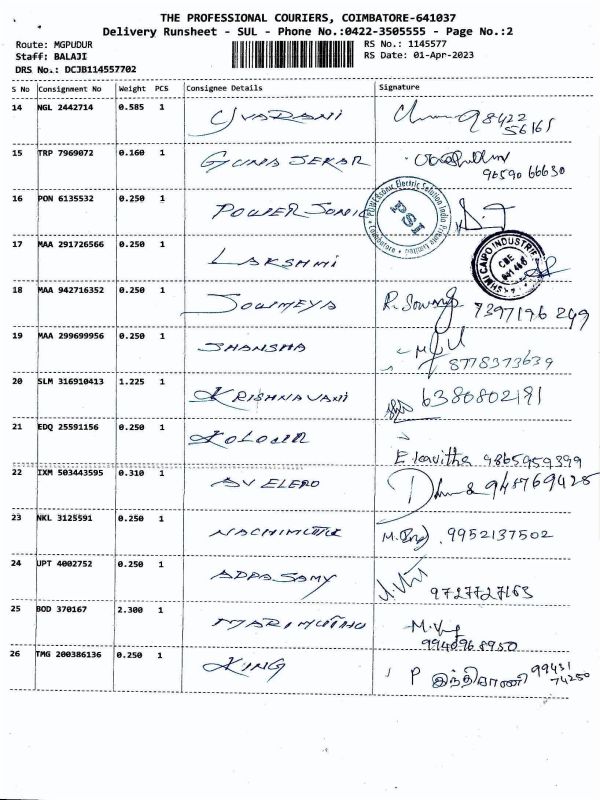 THE PROFESSIONAL COURIERS, COIMBATORE-641037
Delivery Runsheet - SUL - Phone No.:0422-3505555 - Page No.:2
Route: MGPUDUR RS No.: 1145577
Staff: BALAJI RS Date: 01-Apr-2023
DRS No.: DCJB114557702
S No Consignment No Weight PCS Consignee Details Signature
14 NGL 2442714 0.585 1 YUVARANI 98422
56161
15 TRP 7969072 0.160 1 GUNA SEKAR
96590 66630
16 PON 6135532 0.250 1 POWER SONIC POWERsonic Electric Solution India Private Limited Coimbatore
17 MAA 291726566 0.250 1 LAKSHMI CAIPO INDUSTRIE CBE
18 MAA 942716352 0.250 1 SOWMEYA R. Sowmya 7397196 249
19 MAA 299699956 0.250 1 SHANSHA
8778373639
20 SLM 316910413 1.225 1 KRISHNAVANI 6380802191
21 EDQ 25591156 0.250 1 KOLOUR
E. kavitha 9865959399
22 IXM 503443595 0.310 1 AV ELERO 948769425
23 NKL 3125591 0.250 1 NACHIMUTHU M. 9952137502
24 UPT 4002752 0.250 1 APPASAMY
9727727163
25 BOD 370167 2.300 1 MARIMUTHU M.
9940968950
26 TMG 200386136 0.250 1 KING P இந்திராணி 99431
74250